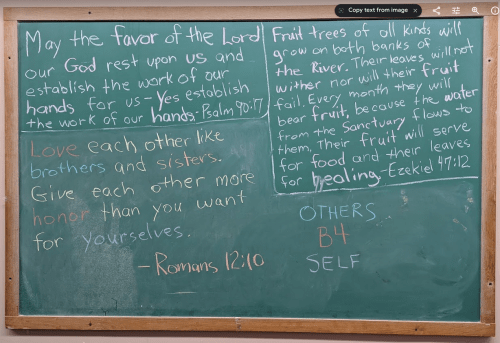 Copy text from image
May the favor of the Lord
our God rest upon us and
establish the work of our
hands for us - yes establish
the work of our hands. - Psalm 90:17
Fruit trees of all kinds will
grow on both banks of
the River. Their leaves will not
wither nor will their fruit
fail. Every month they will
bear fruit, because the water
from the Sanctuary flows to
them. Their fruit will serve
for food and their leaves
for healing - Ezekiel 47:12
Love each other like
brothers and sisters.
Give each other more
honor than you want
for yourselves.
- Romans 12:10
OTHERS
B4
SELF